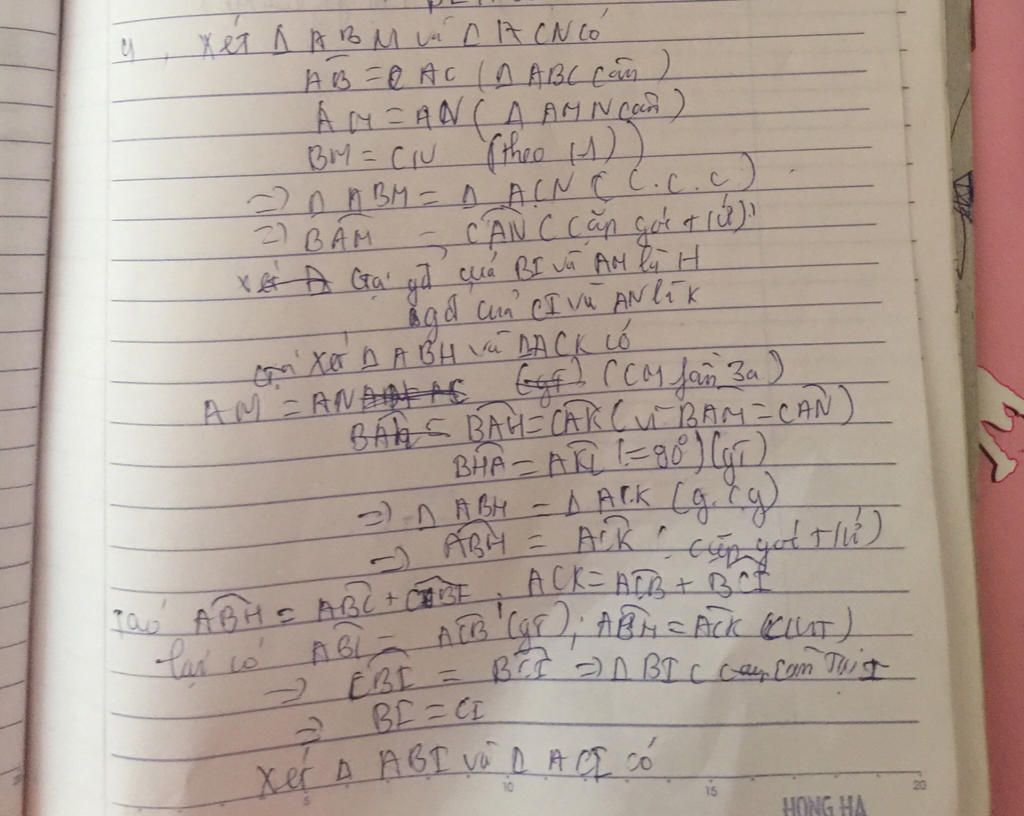 4, xét Δ ABM và Δ ACN có
AB = AC (Δ ABC cân)
AM = AN (Δ AMN cân)
BM = CN (theo (1))
=) Δ ABM = Δ ACN (C.C.C)
=) BÂM = CÂN (cặp góc t/ứ)
Gọi gđ của BI và AM là H
gđ của CI và AN là K
Xét Δ ABH và Δ ACK có
AM = AN (CM phần 3a)
BÂH = CÂK (vì BÂM = CÂN)
BHA = AKC (=90°) (gt)
=) Δ ABH = Δ ACK (g.c.g)
=) ABH = ACK (cặp góc t/ứ)
Ta có ABH = ABC + CBI, ACK = ACB + BCI
lại có ABC = ACB (gt); ABH = ACK (CMT)
=) CBI = BCI =) Δ BIC cân tại I
=) BI = CI
Xét Δ ABI và Δ ACI có
5 10 15 20
HONG HA